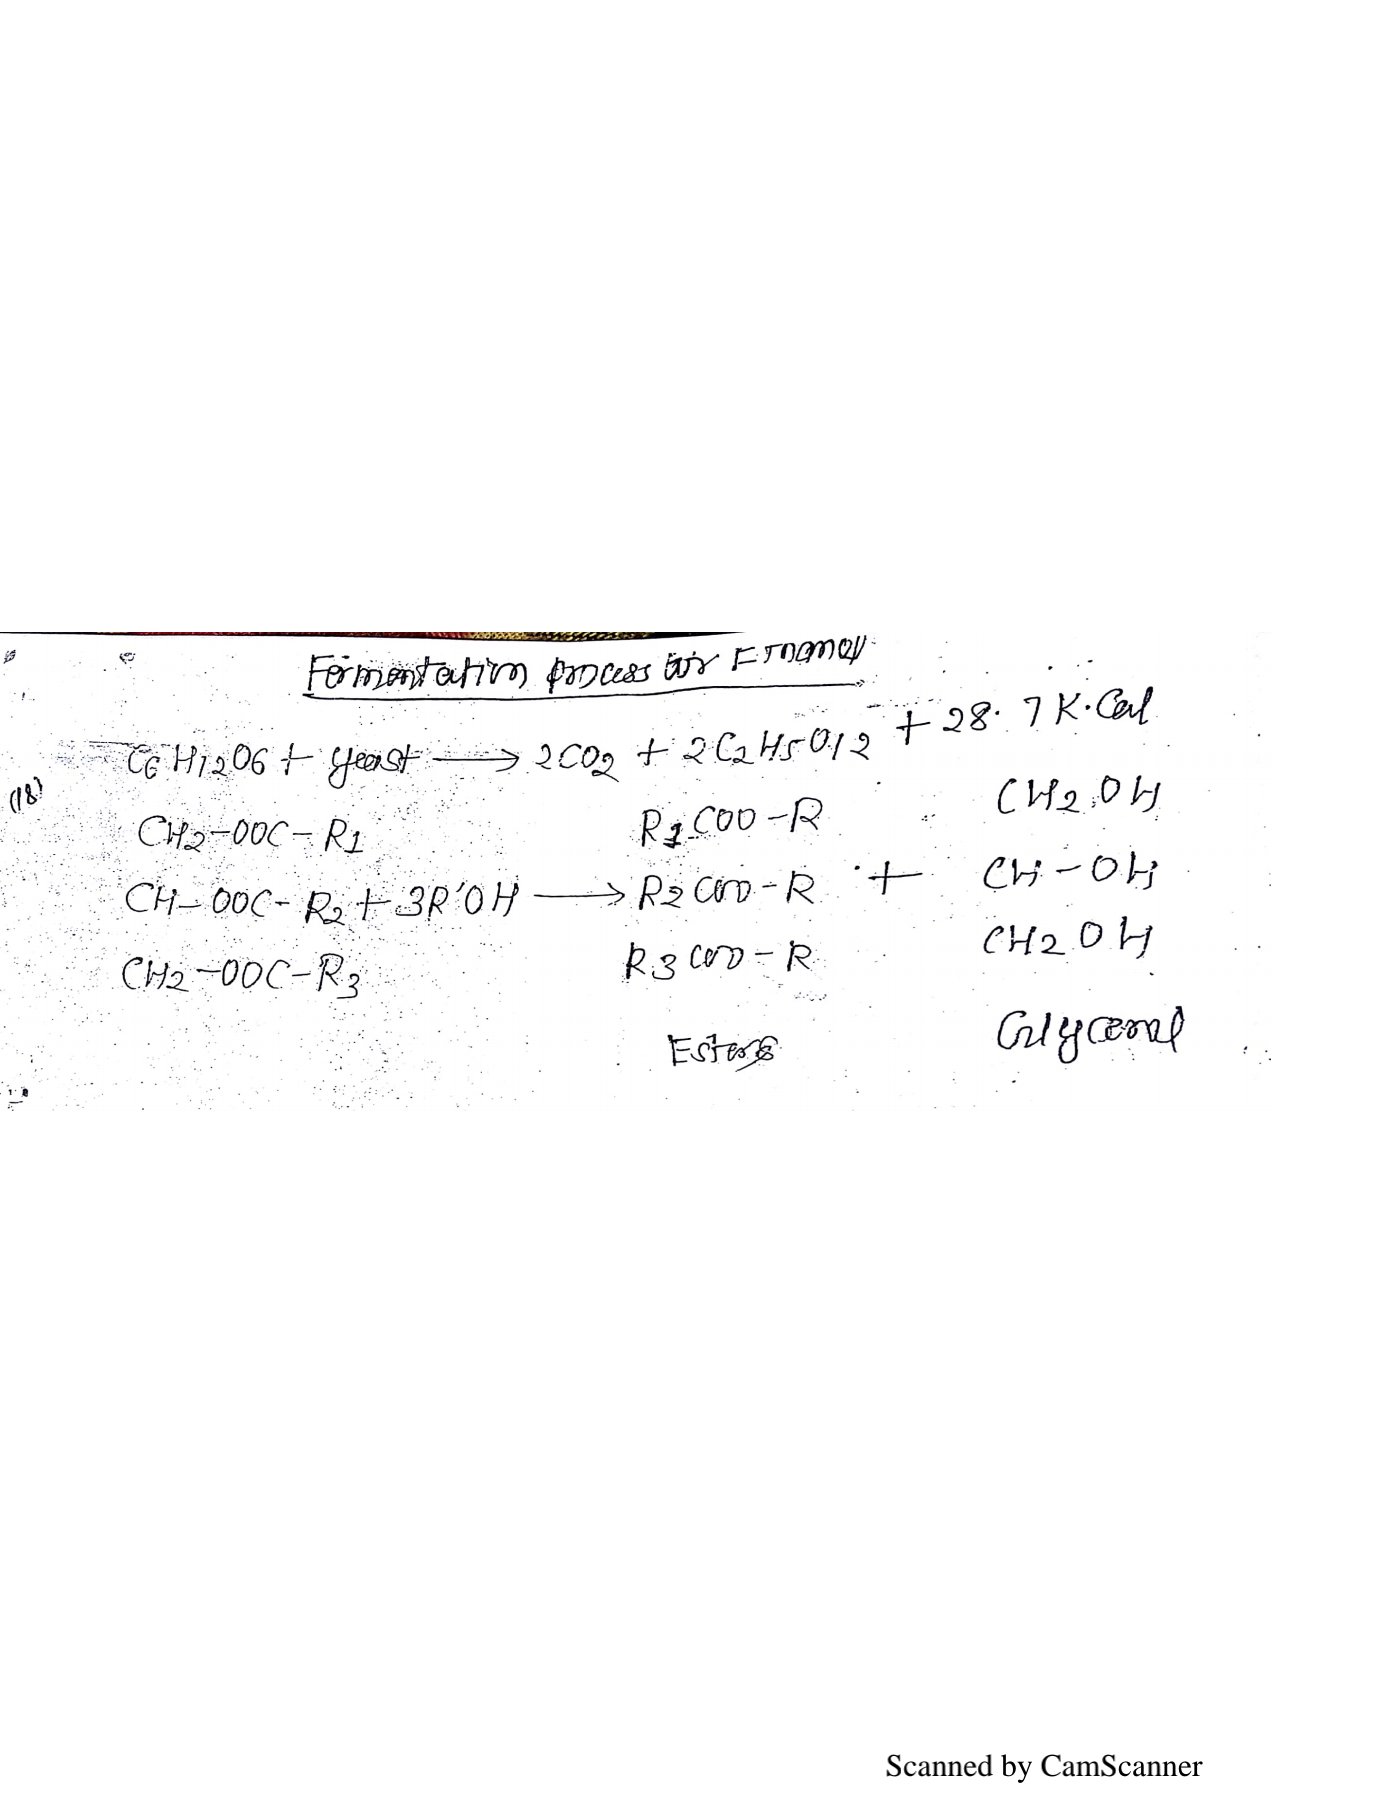 Fermentation process for Ethanol
C6 H12O6 + yeast → 2CO2 + 2C2H5O12 + 28.7 K.Cal
(18)
CH2-OOC-R1 R1COO-R CH2OH
CH-OOC-R2 + 3R'OH → R2COO-R + CH-OH
CH2-OOC-R3 R3COO-R CH2OH
Esters Glycerol
Scanned by CamScanner